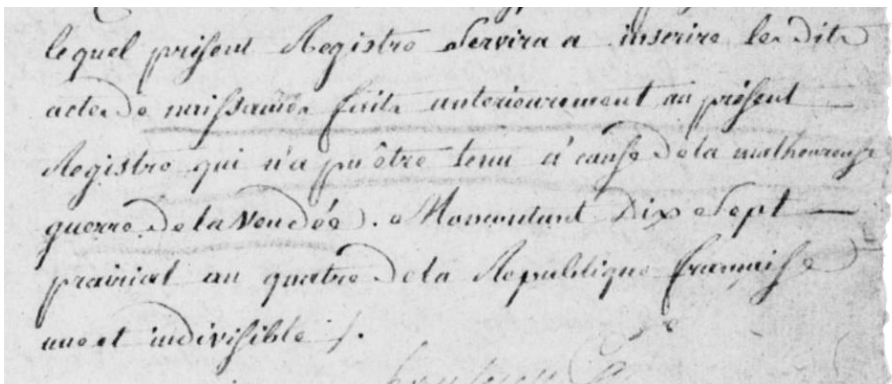 lequel présent Registre servira a inscrire les dits
actes de naissances faits anterieurement au présent
Registre qui n'a pu être tenu a cause de la malheureuse
guerre de la Vendée. Moncoutant Dix sept
prairial an quatre de la Republique française
une et indivisible ./.